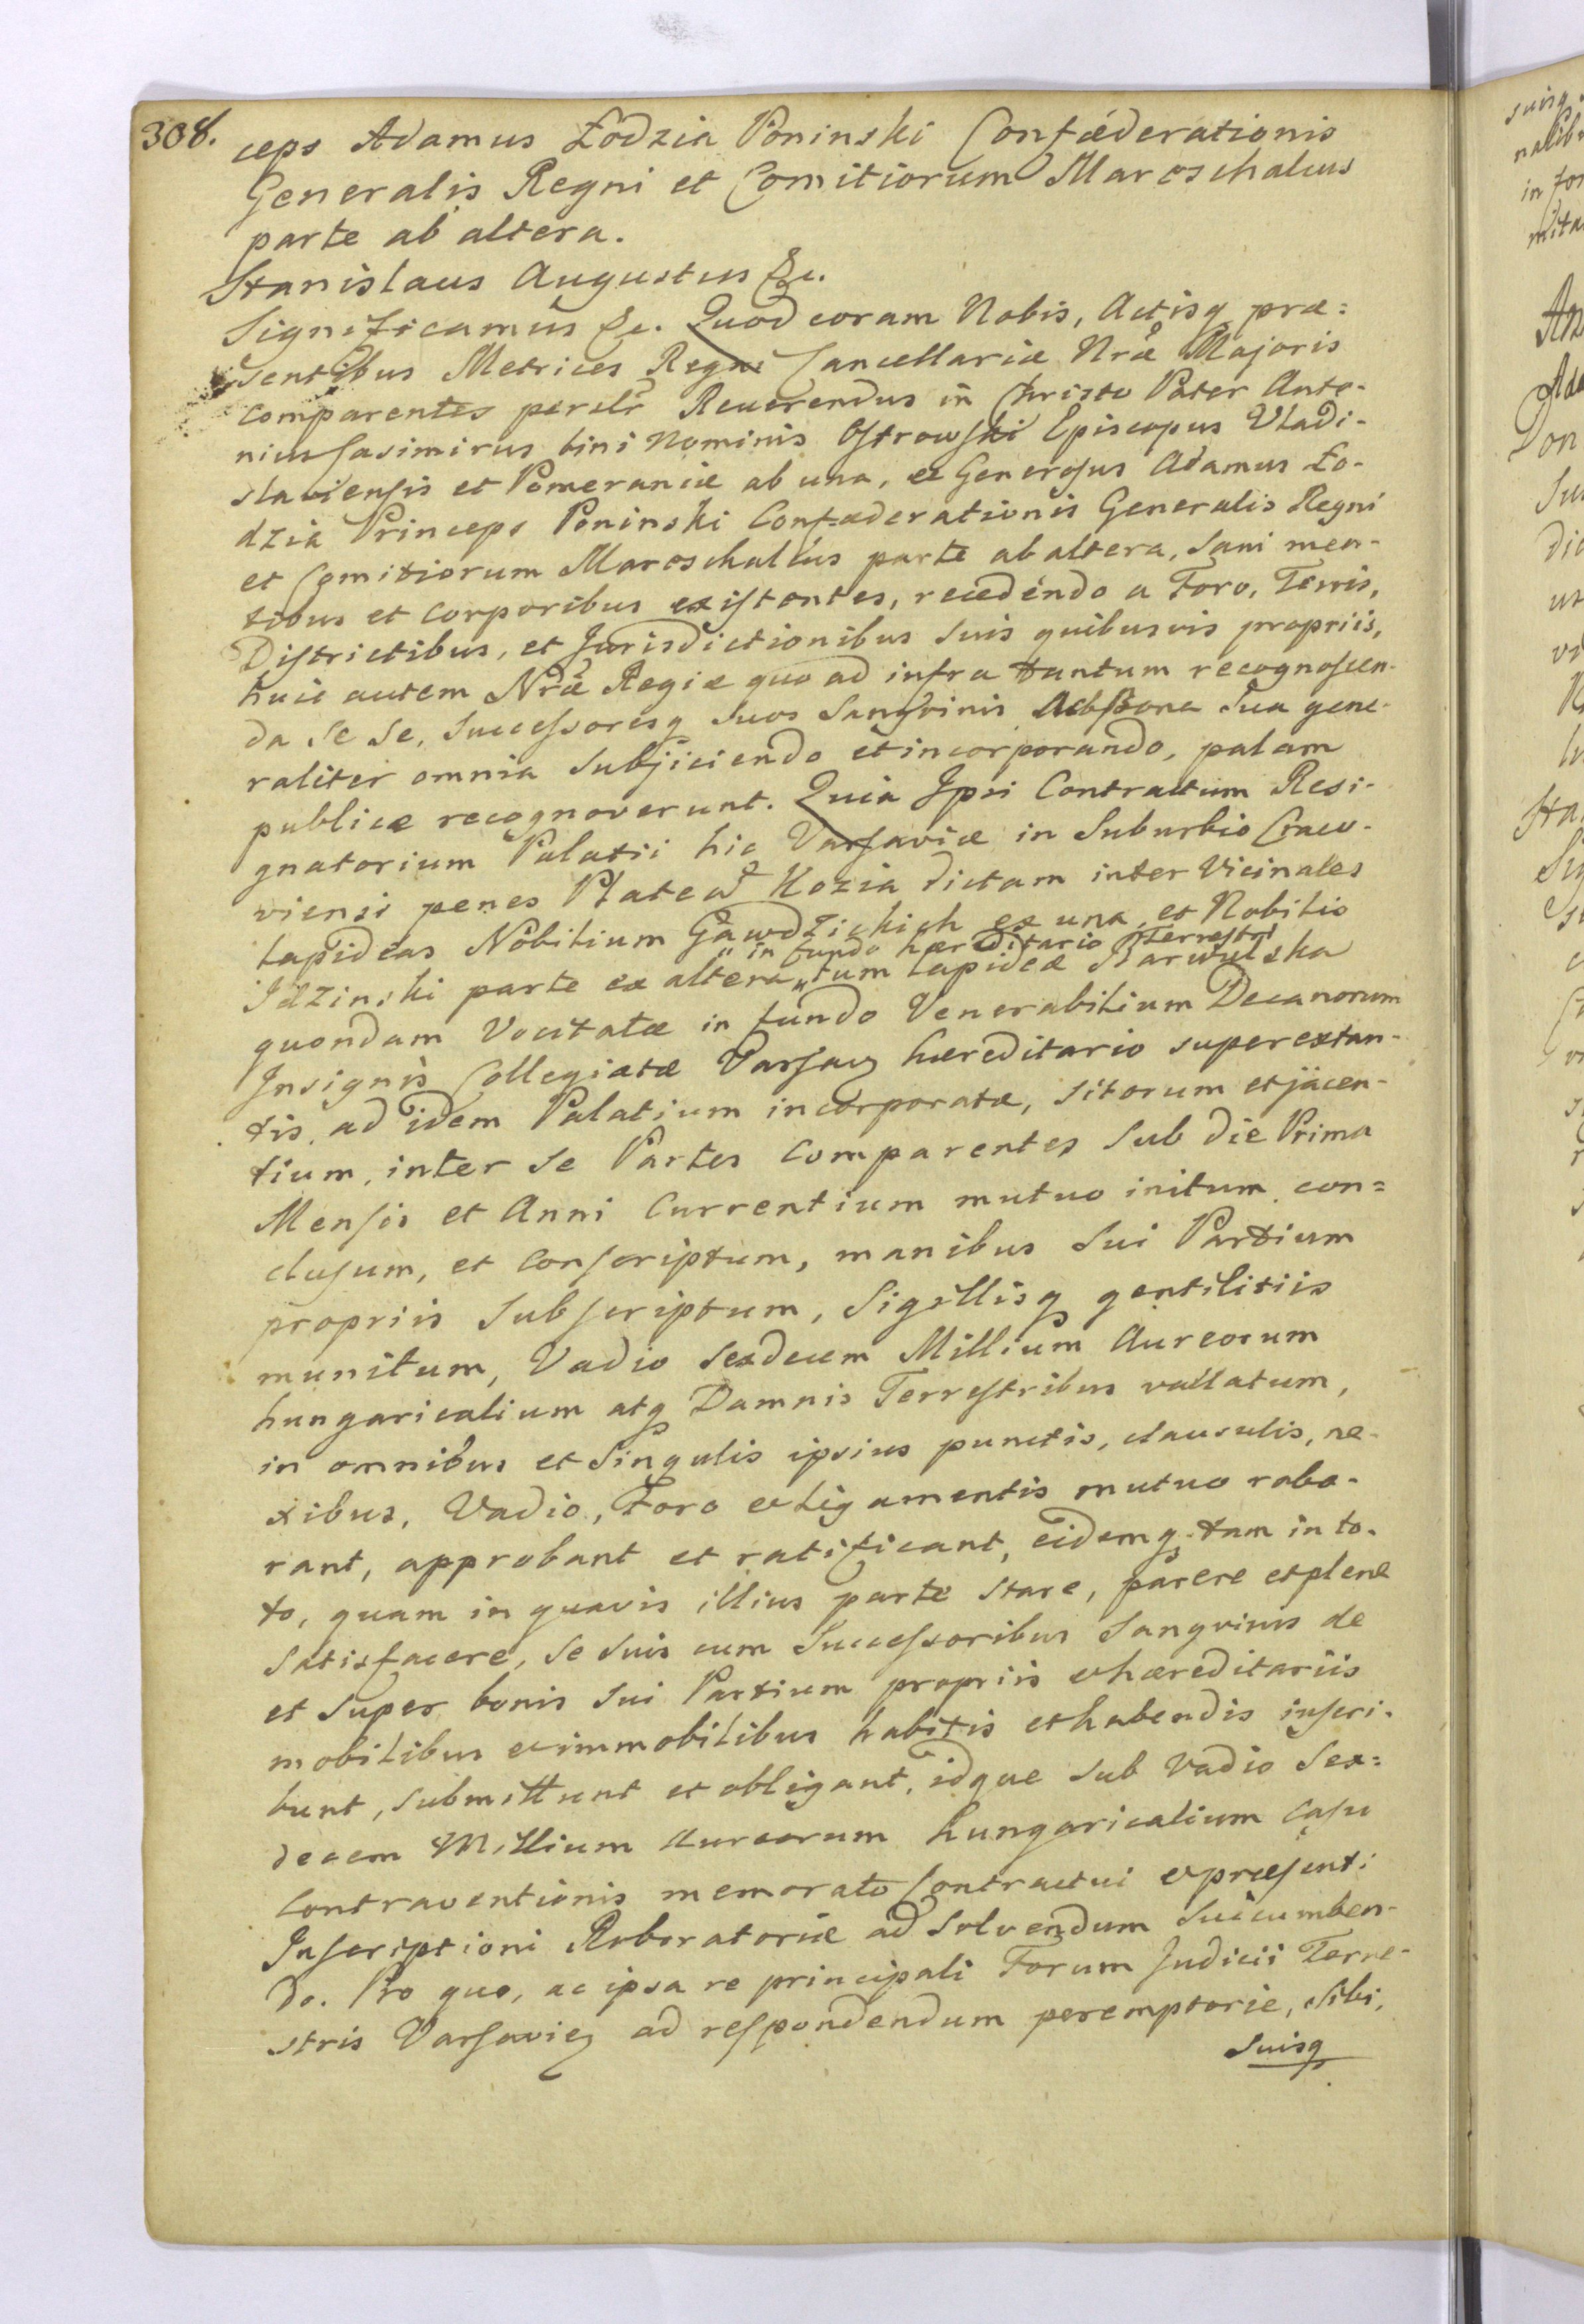 308.
ceps Adamus Łodzia Poninski Confæderationis
Generalis Regni et Comitiorum Mareschalcus
parte ab altera.
Stanislaus Augustus &c.
Significamus &c. Quod coram Nobis, Actisq præ=
sentibus Metrices Regni Cancellariæ Nræ Majoris
comparentes perillr Reverendus in Christo Pater Anto-
nius Casimirus bini Nominis Ostrowski Episcopus Vladi-
slaviensis et Pomeraniæ ab una, et Generosus Adamus Ło-
dzia Princeps Poninski Confæderationis Generalis Regni
et Comitiorum Mareschalcus parte ab altera, sani men-
tibus et corporibus existentes, recedendo a Foro, Terris,
Districtibus, et Jurisdictionibus suis quibusvis propriis,
huic autem Nræ Regiæ quo ad infra tantum recognoscen-
da se se, successoresq suos sangvinis bona sua gene-
raliter omnia subjiciendo et incorporando, palam
publice recognoverunt. Quia Ipsi Contractum Resi-
gnatorium Palatii hic Varsaviæ in Suburbio Craco-
viensi penes Plateã Kozia dictam inter Vicinales
Lapideas Nobilium Gawdzickich ex una, et Nobilis
Idzinski parte ex altera „tum Lapideæ Barwulska
„in fundo hæreditario Terrestri
quondam Vocitatæ in fundo Venerabilium Decanorum
Insignis Collegiatæ Varsav hæreditario superextan-
tis, ad idem Palatium incorporatæ, sitorum et jacen-
tium, inter se Partes Comparentes sub die Prima
Mensis et Anni Currentium mutuo initum, con=
clusum, et conscriptum, manibus sui Partium
propriis subscriptum, Sigillisq gentilitiis
munitum, Vadio sexdecem Millium Aureorum
hungaricalium atq Damnis Terrestribus vallatum,
in omnibus et singulis ipsius punctis, clausulis, ne-
xibus, Vadio, Foro et ligamentis mutuo robo-
rant, approbant et ratificant, eidemq tam in to-
to, quam in quavis illius parte stare, parere et plene
satisfacere, se suis cum Successoribus sangvinis de
et super bonis sui Partium propriis et hæreditariis
mobilibus et immobilibus habitis et habendis inscri-
bunt, submittunt et obligant, idque sub Vadio Sex=
decem Millium Aureorum hungaricalium casu
contraventionis memorato Contractui et præsenti
Inscriptioni Roboratoriæ ad solvendum succumben-
do. Pro quo, ac ipsa re principali Forum Judicii Terre-
stris Varsavie ad respondendum peremptorie, sibi,
suisq